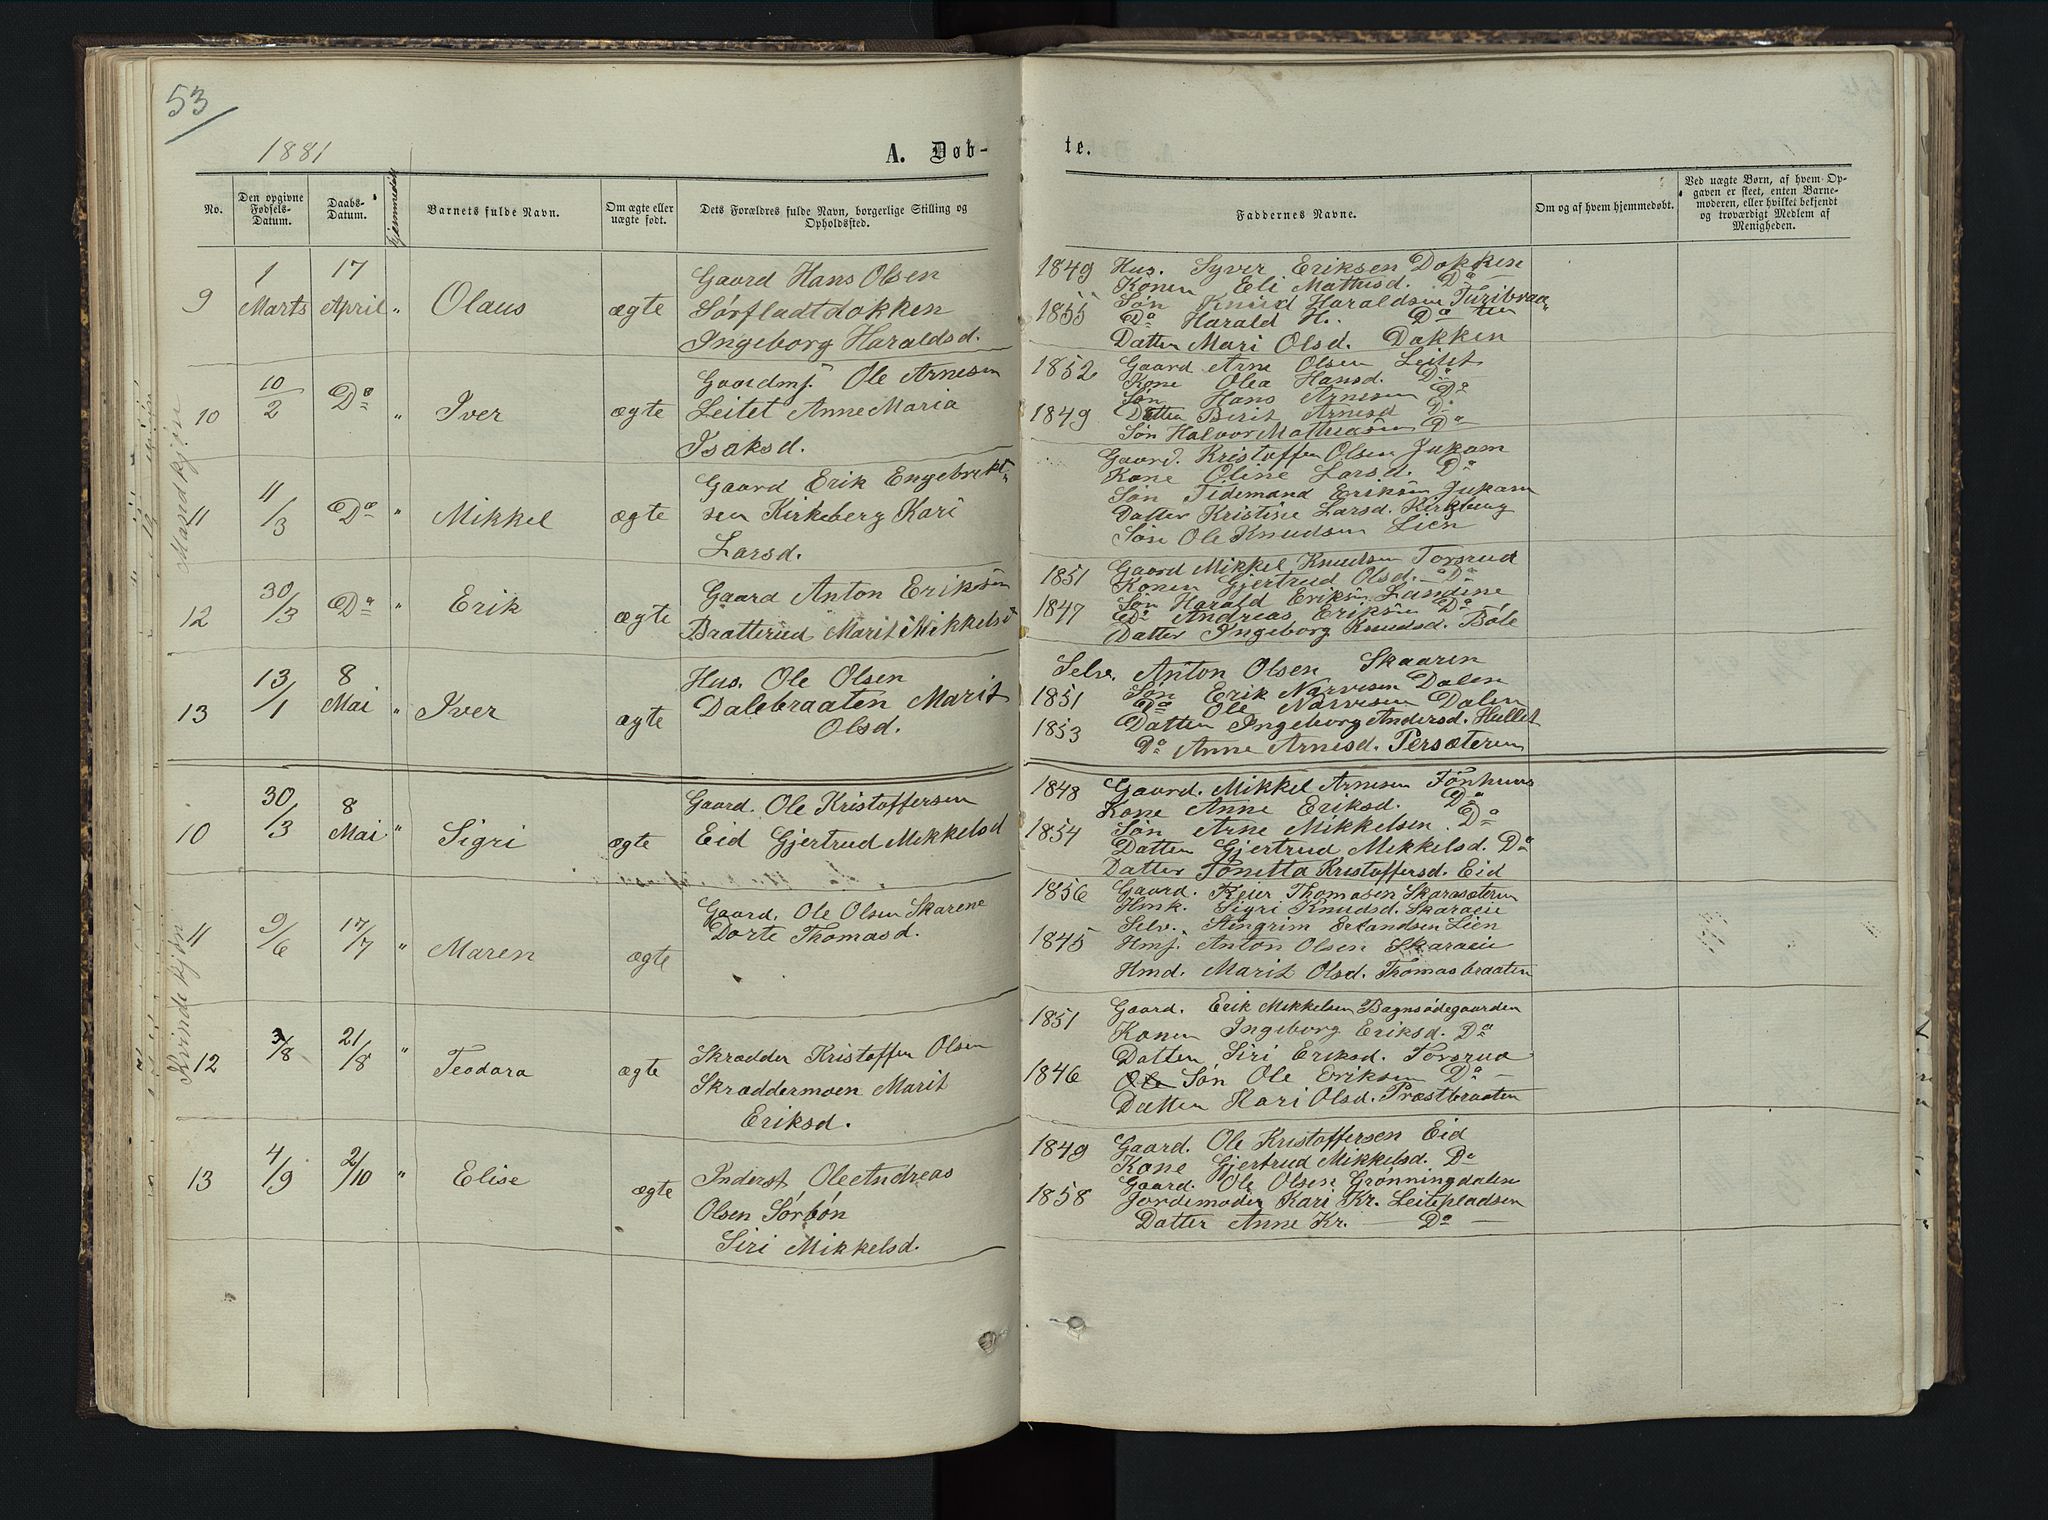 53
1881
A. Døb-
No.
Den opgivne Fødsels-Datum.
Daabs-Datum.
Hjemmedøbt
Barnets fulde Navn.
Om ægte eller uægte født.
Dets Forældres fulde Navn, borgerlige Stilling og Opholdssted.
Mandkjøn
9 1 Marts 17 April " Olaus ægte
Gaard Hans Olsen
Sørfladtdokken
Ingeborg Haraldsd.
10 10/2 Do " Iver ægte
Gaardmf. Ole Arnesen
Leitet Anne Maria
Isaksd.
11 11/3 Do " Mikkel ægte
Gaard Erik Engebrekt-
sen Kirkeberg Kari
Larsd.
12 30/3 Do " Erik ægte
Gaard Anton Eriksen
Bratterud Marit Mikkelsd
13 13/1 8 Mai " Iver ægte
Hus. Ole Olsen
Dalebraaten Marit
Olsd.
Kvindekjøn
10 30/3 8 Mai " Sigri ægte
Gaard. Ole Kristoffersen
Eid Gjertrud Mikkelsd
11 9/6 17/7 " Maren ægte
Gaard. Ole Olsen Skarene
Dorte Thomasd.
12 3/8 21/8 " Teodora ægte
Skrædder Kristoffer Olsen
Skræddermoen Marit
Eriksd.
13 4/9 2/10 " Elise ægte
Inderst Ole Andreas
Olsen Sørbøn
Siri Mikkelsd.
te.
Faddernes Navne.
Om og af hvem hjemmedøbt.
Ved uægte Børn, af hvem Op-
gaven er skeet, enten Barne-
moderen, eller hvilket bekjendt
og troværdigt Medlem af
Menigheden.
1849 Hus. Syver Eriksen Dokken
Konen Eli Mathisd. Do
1855 Søn Knud Haraldsen Turibraa-
Do Harald H. Do ten
Datter Mari Olsd. Dokken
1852 Gaard Arne Olsen Leitet
Kone Olea Hansd. Do
Søn Hans Arnesen Do
1849 Datter Berit Arnesd Do
Søn Halvor Mathiasen Do
Gaard. Kristoffer Olsen Jukam
Kone Oline Larsd. Do
Søn Tidemand Eriksen Jukam
Datter Kristine Larsd. Kirkberg
Søn Ole Knudsen Lien
1851 Gaard Mikkel Knudsen Torsrud
Konen Gjertrud Olsd. Do
1847 Søn Harald Eriksen Landene
Do Andreas Eriksen Do
Datter Ingeborg Knudsd. Bøle
Selv. Anton Olsen Skaaren
1851 Søn Erik Narvesen Dalen
Do Ole Narvesen Dalen
1853 Datter Ingeborg Andersd. Hullet
Do Anne Arnesd. Persæteren
1848 Gaard. Mikkel Arnesen Fønhuus
Kone Anne Eriksd. Do
1854 Søn Arne Mikkelsen. Do
Datter Gjertrud Mikkelsd. Do
Datter Tonetta Kristoffersd. Eid
1856 Gaard. Thomasen Skarasæteren
Hmk. Sigri Knudsd. Skaraeie
Selv. Stengrim Erlandsen Lien
1845 Hmf. Anton Olsen Skaraeie
Hmd. Marit Olsd. Thomasbraaten
1851 Gaard. Erik Mikkelsen Bagnsødegaarden
Konen Ingeborg Eriksd. Do
Datter Siri Eriksd. Torsrud
1846 Søn Ole Eriksen Do
Datter Kari Olsd. Præstbraaten
1849 Gaard. Ole Kristoffersen Eid
Kone Gjertrud Mikkelsd. Do
Gaard. Ole Olsen Grønningdalen
1858 Jordemoder Kari Kr. Leitepladsen
Datter Anne Kr. — Do —